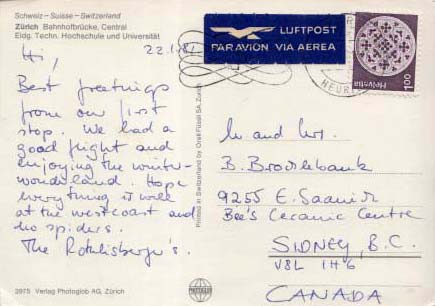 Schweiz – Suisse – Switzerland
Zürich Bahnhofbrücke, Central
Eidg. Techn. Hochschule und Universität
22.1.81
LUFTPOST
PAR AVION VIA AEREA
Helvetia 100
Hi,
Best greetings
from our first
stop. We had a
good flight and
enjoying the winter-
wonderland. Hope
everything is well
at the westcoast and
no spiders.
The Rothlisberge's.
Printed in Switzerland by Orell Füssli SA, Zürich
Mr and Mrs.
B. Brocklebank
9255 E. Saanich
Bee's Ceramic Centre
SIDNEY, B.C.
V8L 1H6
CANADA
3975 Verlag Photoglob AG, Zürich
PHOTOGLOB